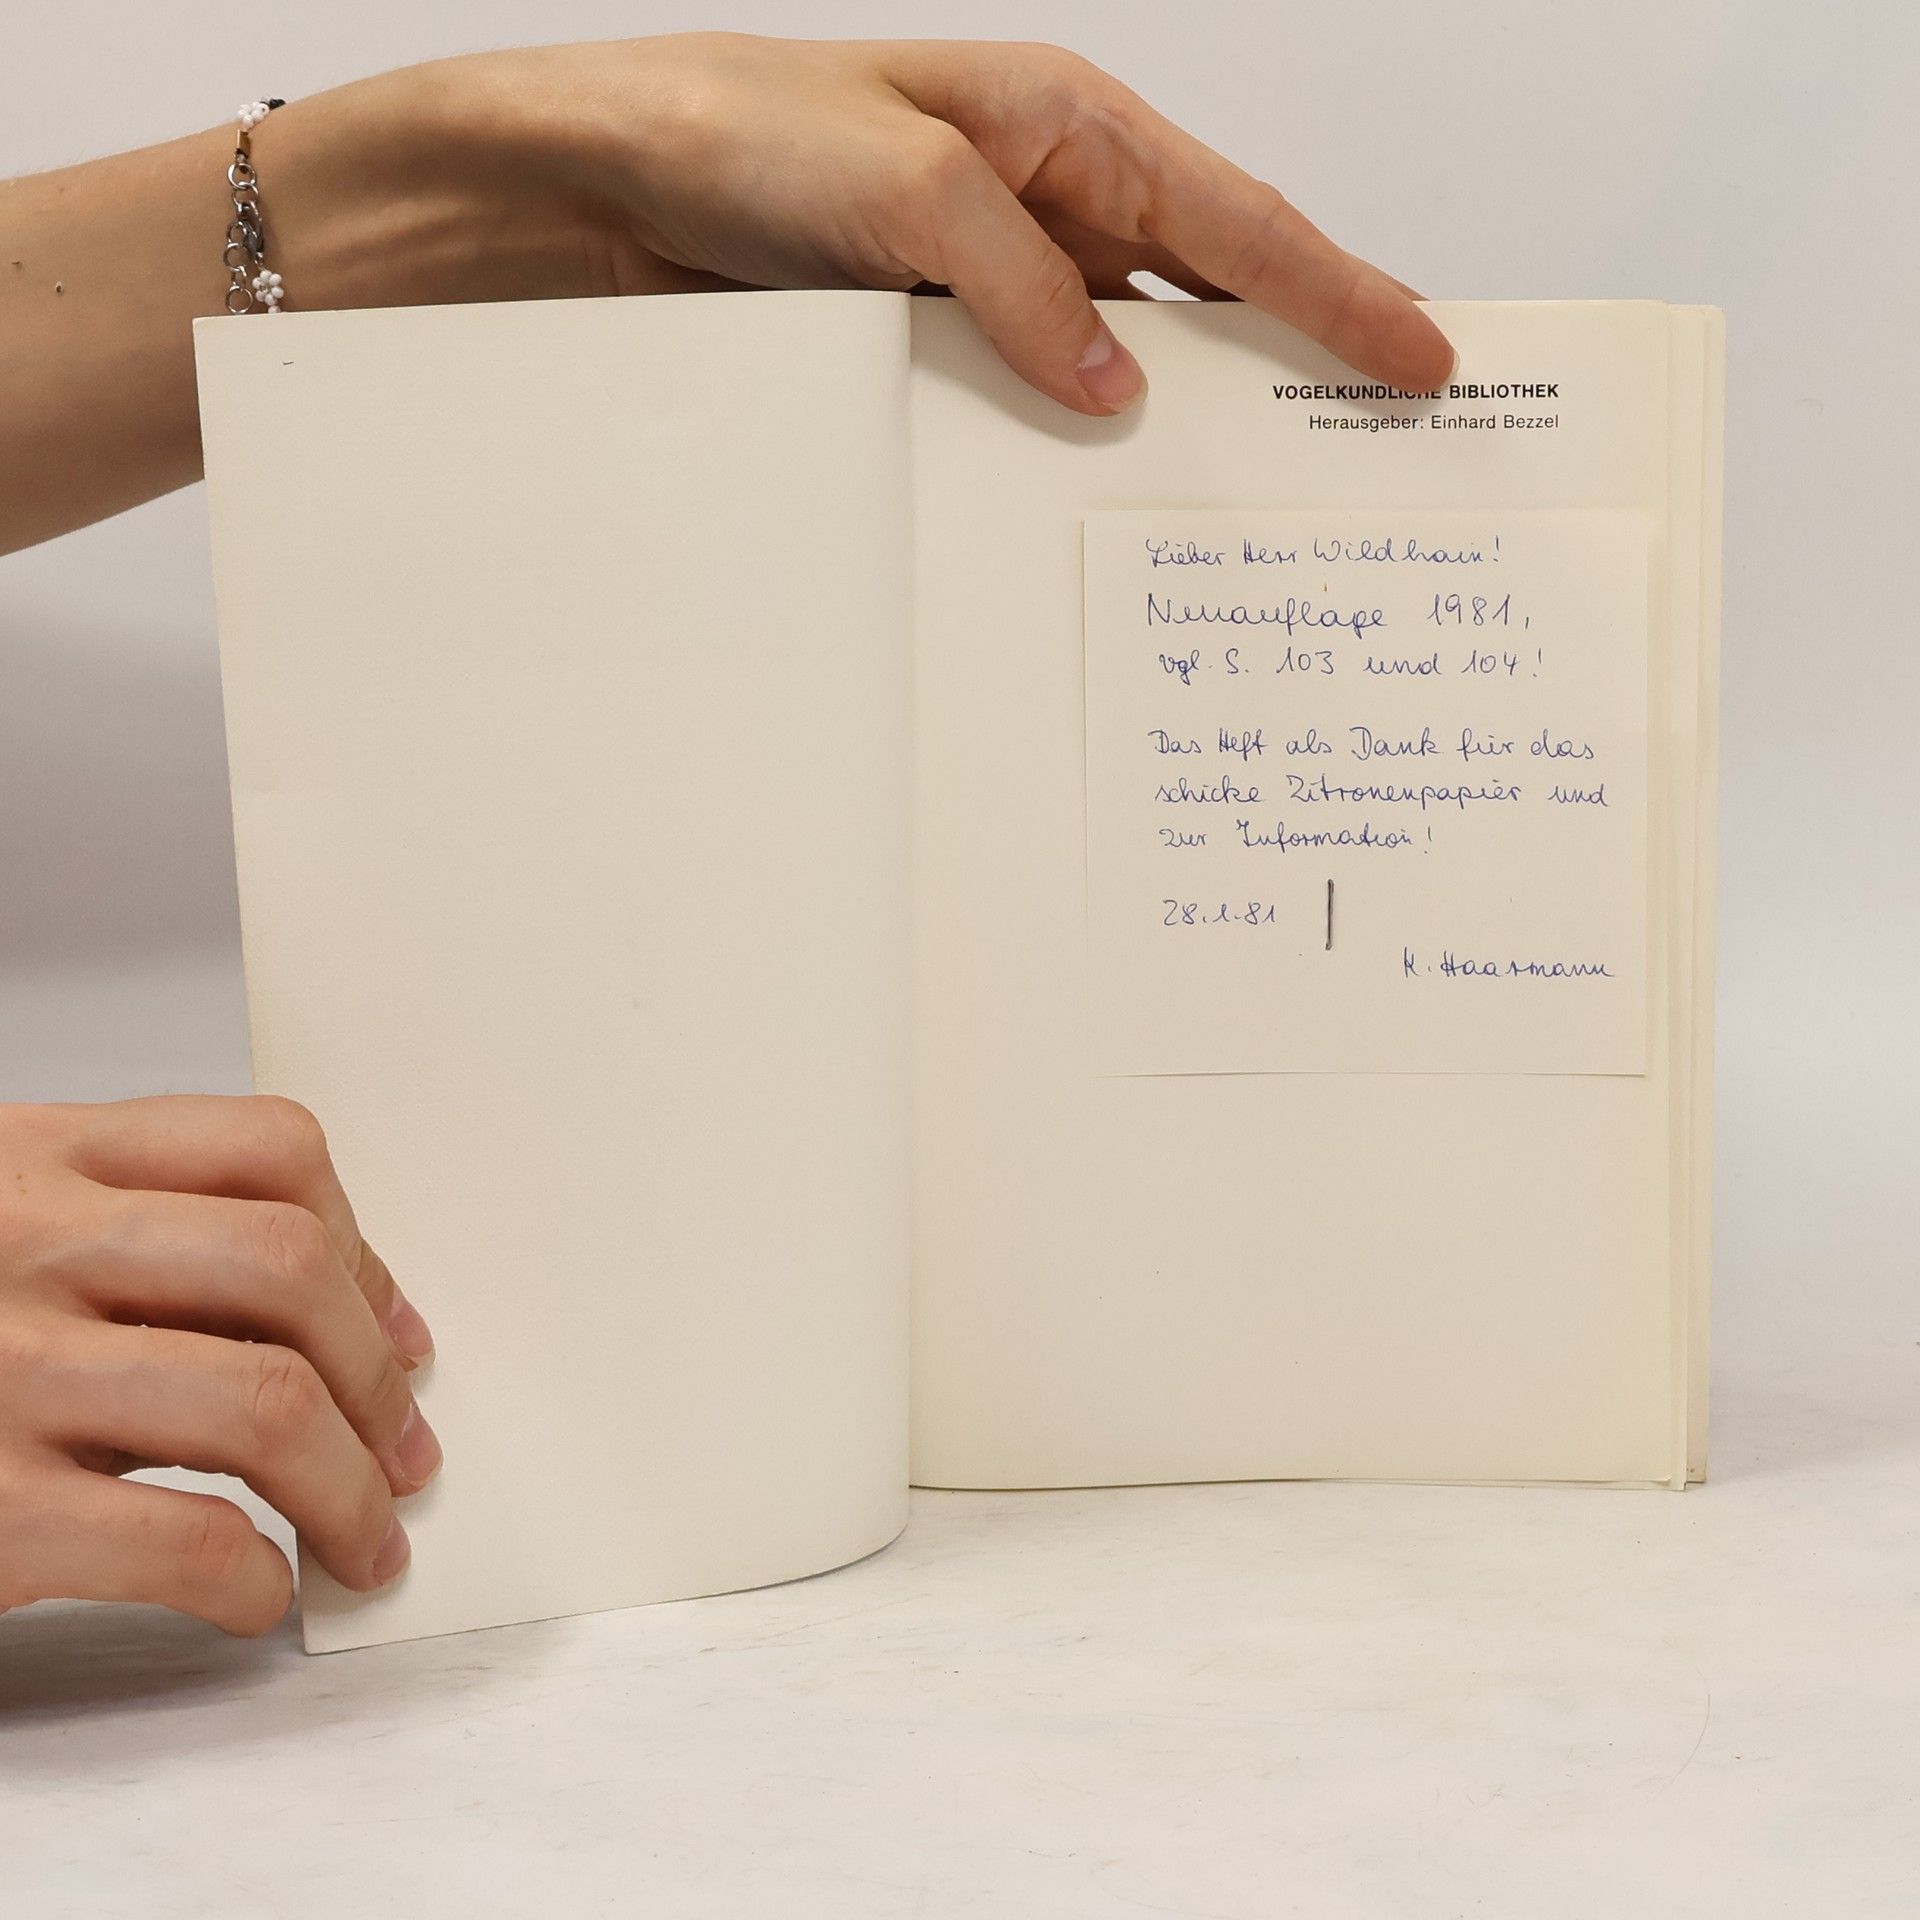 VOGELKUNDLICHE BIBLIOTHEK
Herausgeber: Einhard Bezzel
Lieber Herr Wildhain!
Neuauflage 1981,
vgl. S. 103 und 104!
Das Heft als Dank für das
schicke Zitronenpapier und
zur Information!
28.1.81
K. Haarmann